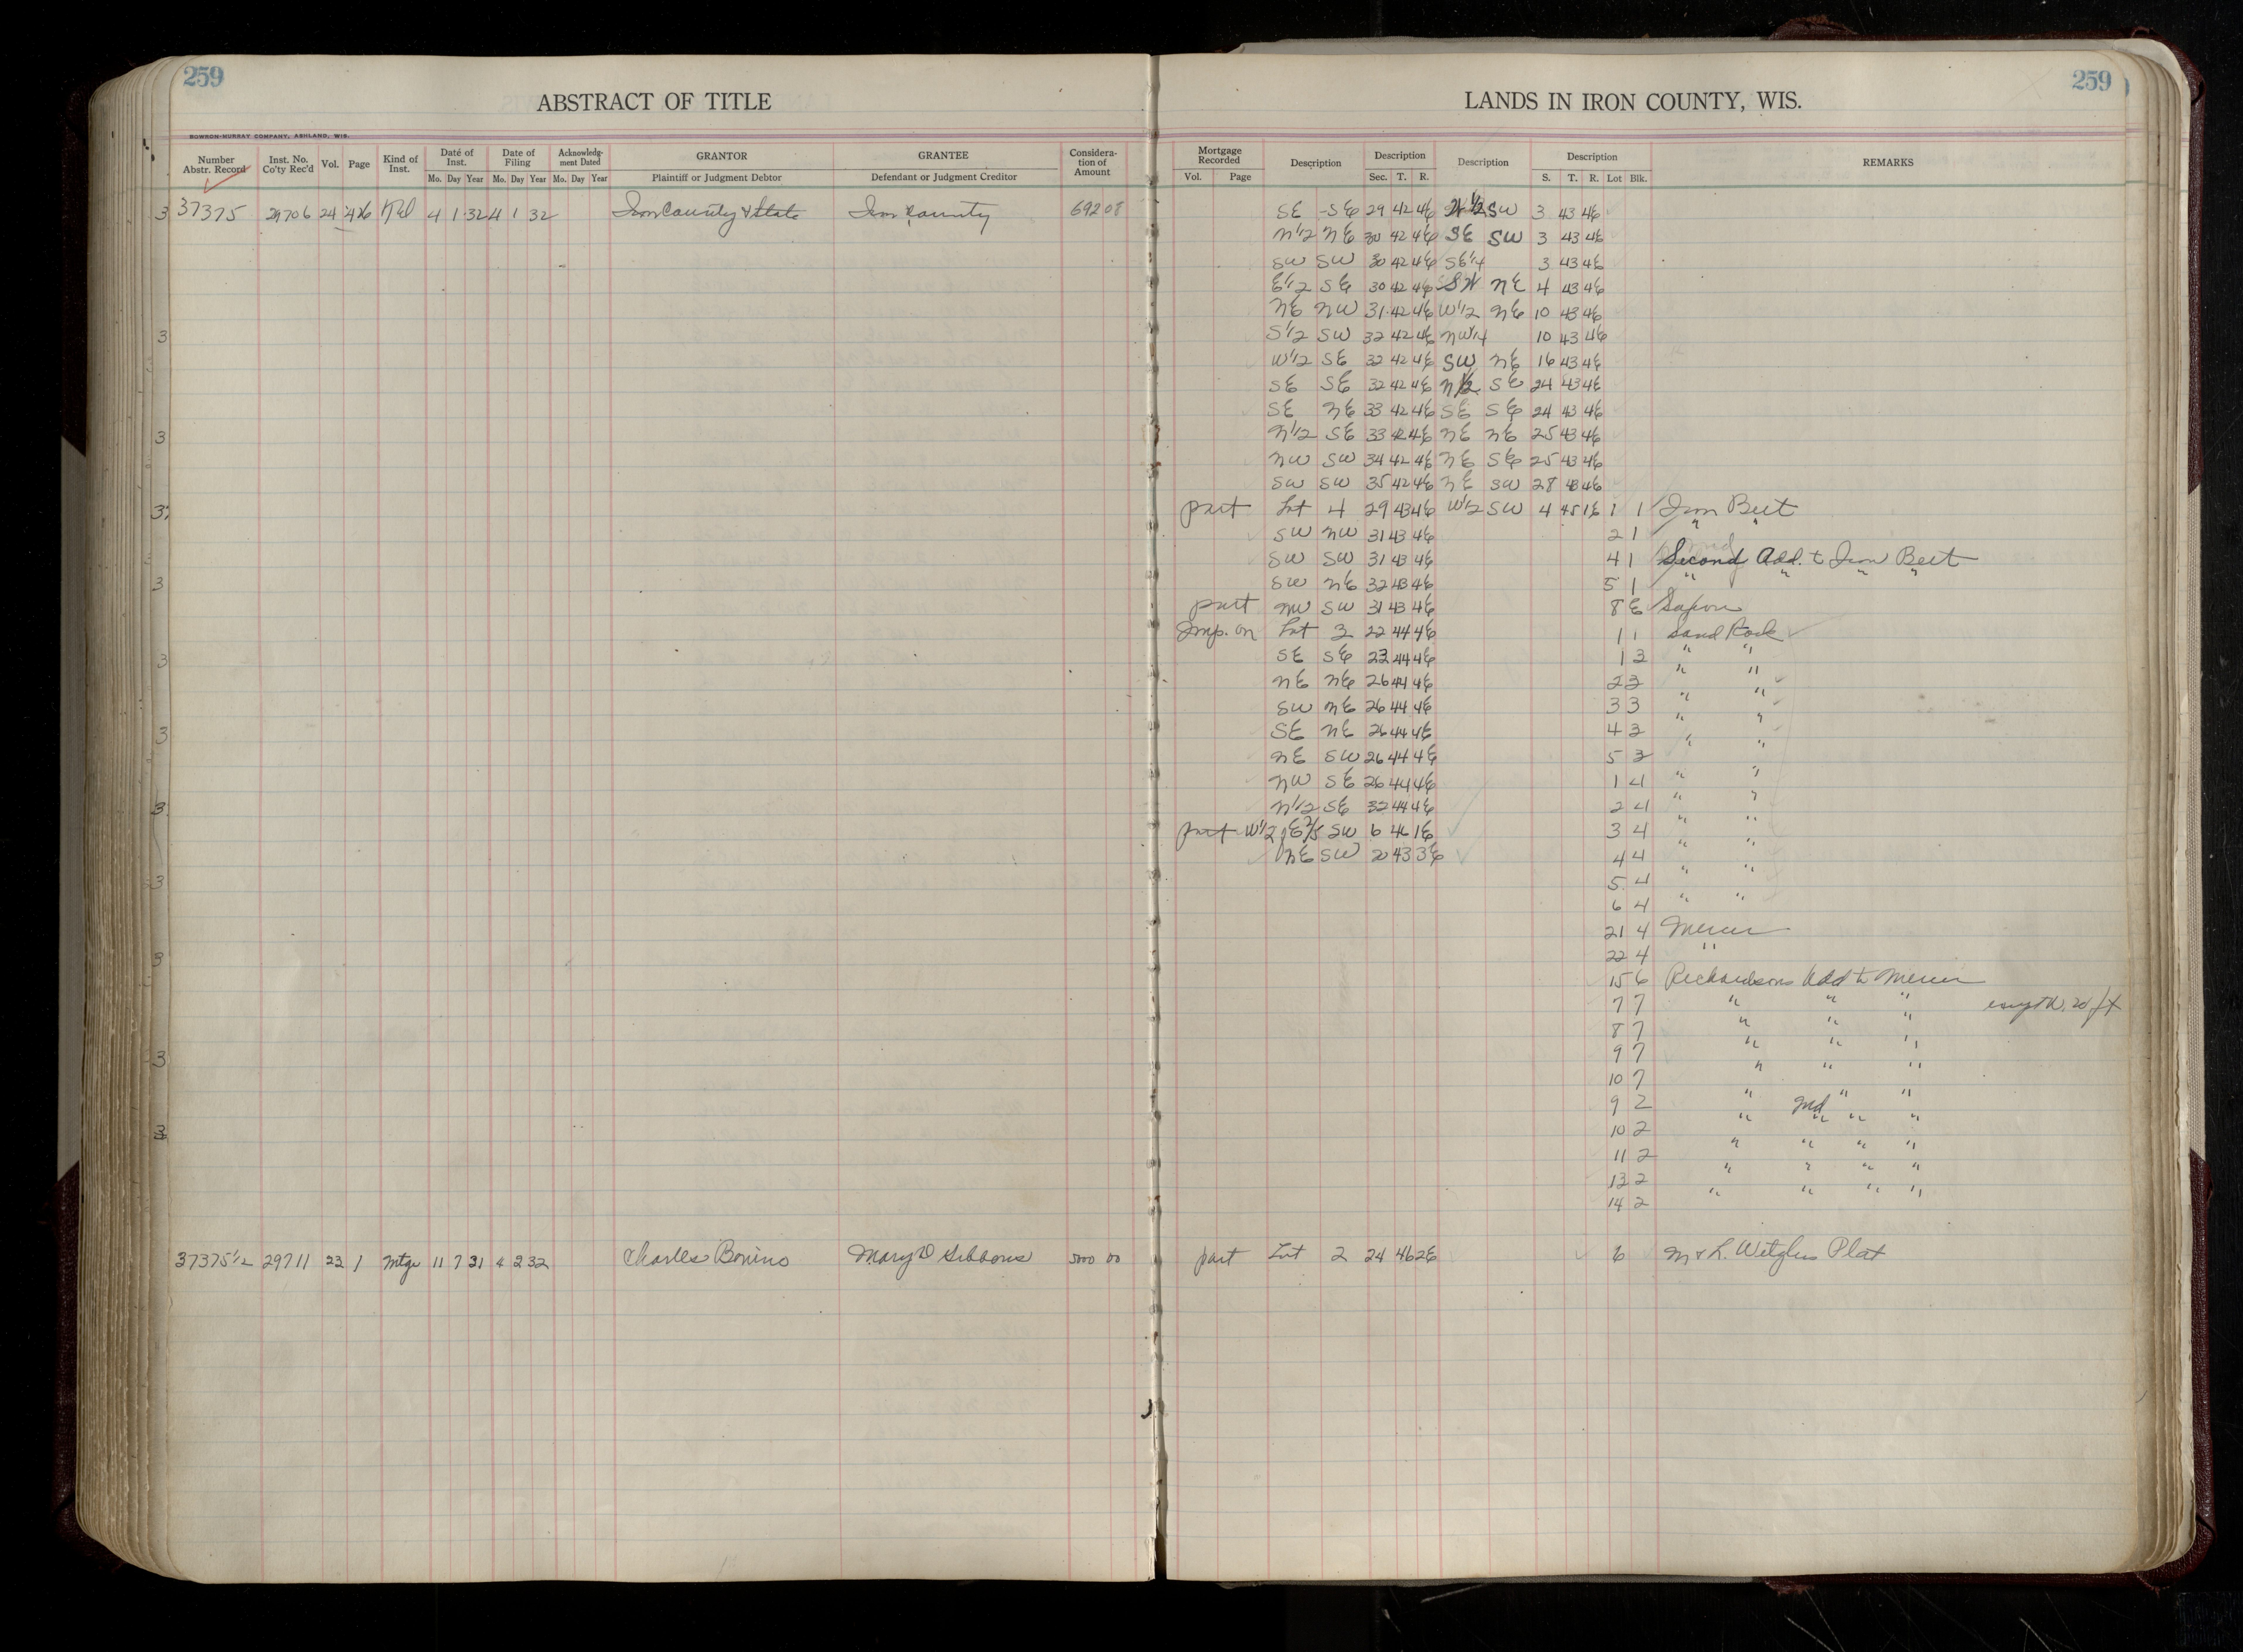 259
ABSTRACT OF TITLE
BOWRON-MURRAY COMPANY, ASHLAND, WIS.
Number Abstr. Record Inst. No. Co'ty Rec'd Vol. Page Kind of Inst. Date of Inst. Mo. Day Year Date of Filing Mo. Day Year Acknowledgment Dated Mo. Day Year GRANTOR Plaintiff or Judgment Debtor GRANTEE Defendant or Judgment Creditor Consideration of Amount
37375 29706 24 426 4 1 32 4 1 32 Iron County & State Iron County 692 08
37375 1/2 29711 23 1 Mtge 11 7 31 4 2 32 Charles Bonino Mary D Gibbons 5000 00
259
LANDS IN IRON COUNTY, WIS.
Mortgage Recorded Vol. Page Description Description Sec. T. R. Description Description S. T. R. Lot Blk. REMARKS
SE SE 29 42 4E W 1/2 SW 3 43 4E
N 1/2 NE 30 42 4E SE SW 3 43 4E
SW SW 30 42 4E SE 1/4 3 43 4E
E 1/2 SE 30 42 4E SW NE 4 43 4E
NE NW 31 42 4E W 1/2 NE 10 43 4E
S 1/2 SW 32 42 4E NW 1/4 10 43 4E
W 1/2 SE 32 42 4E SW NE 16 43 4E
SE SE 32 42 4E N 1/2 SE 24 43 4E
SE NE 33 42 4E SE SE 24 43 4E
N 1/2 SE 33 42 4E NE NE 25 43 4E
NW SW 34 42 4E NE SE 25 43 4E
SW SW 35 42 4E NE SW 28 43 4E
part Lot 4 29 43 4E W 1/2 SW 4 45 1E 1 1 Iron Belt
SW NW 31 43 4E 2 1 " "
SW SW 31 43 4E 4 1 Second Add. to Iron Belt
SW NE 32 43 4E 5 1 " " " "
part NW SW 31 43 4E 8 E Saxon
Imp. on Lot 3 22 44 4E 1 1 Sand Rock
SE SE 23 44 4E 1 3 " "
NE NE 26 44 4E 2 3 " "
SW NE 26 44 4E 3 3 " "
SE NE 26 44 4E 4 3 " "
NE SW 26 44 4E 5 3 " "
NW SE 26 44 4E 1 4 " "
N 1/2 SE 32 44 4E 2 4 " "
part W 1/2 E 2/5 SW 6 46 1E 3 4 " "
NE SW 20 43 3E 4 4 " "
5 4 " "
6 4 " "
21 4 Mercer
22 4 "
15 6 Richardsons Add to Mercer
7 7 " " " except W. 20 ft
8 7 " " "
9 7 " " "
10 7 " " "
9 2 " 2nd " "
10 2 " " " "
11 2 " " " "
13 2 " " " "
14 2 " " " "
part Lot 2 24 46 2E 6 M & L. Plat